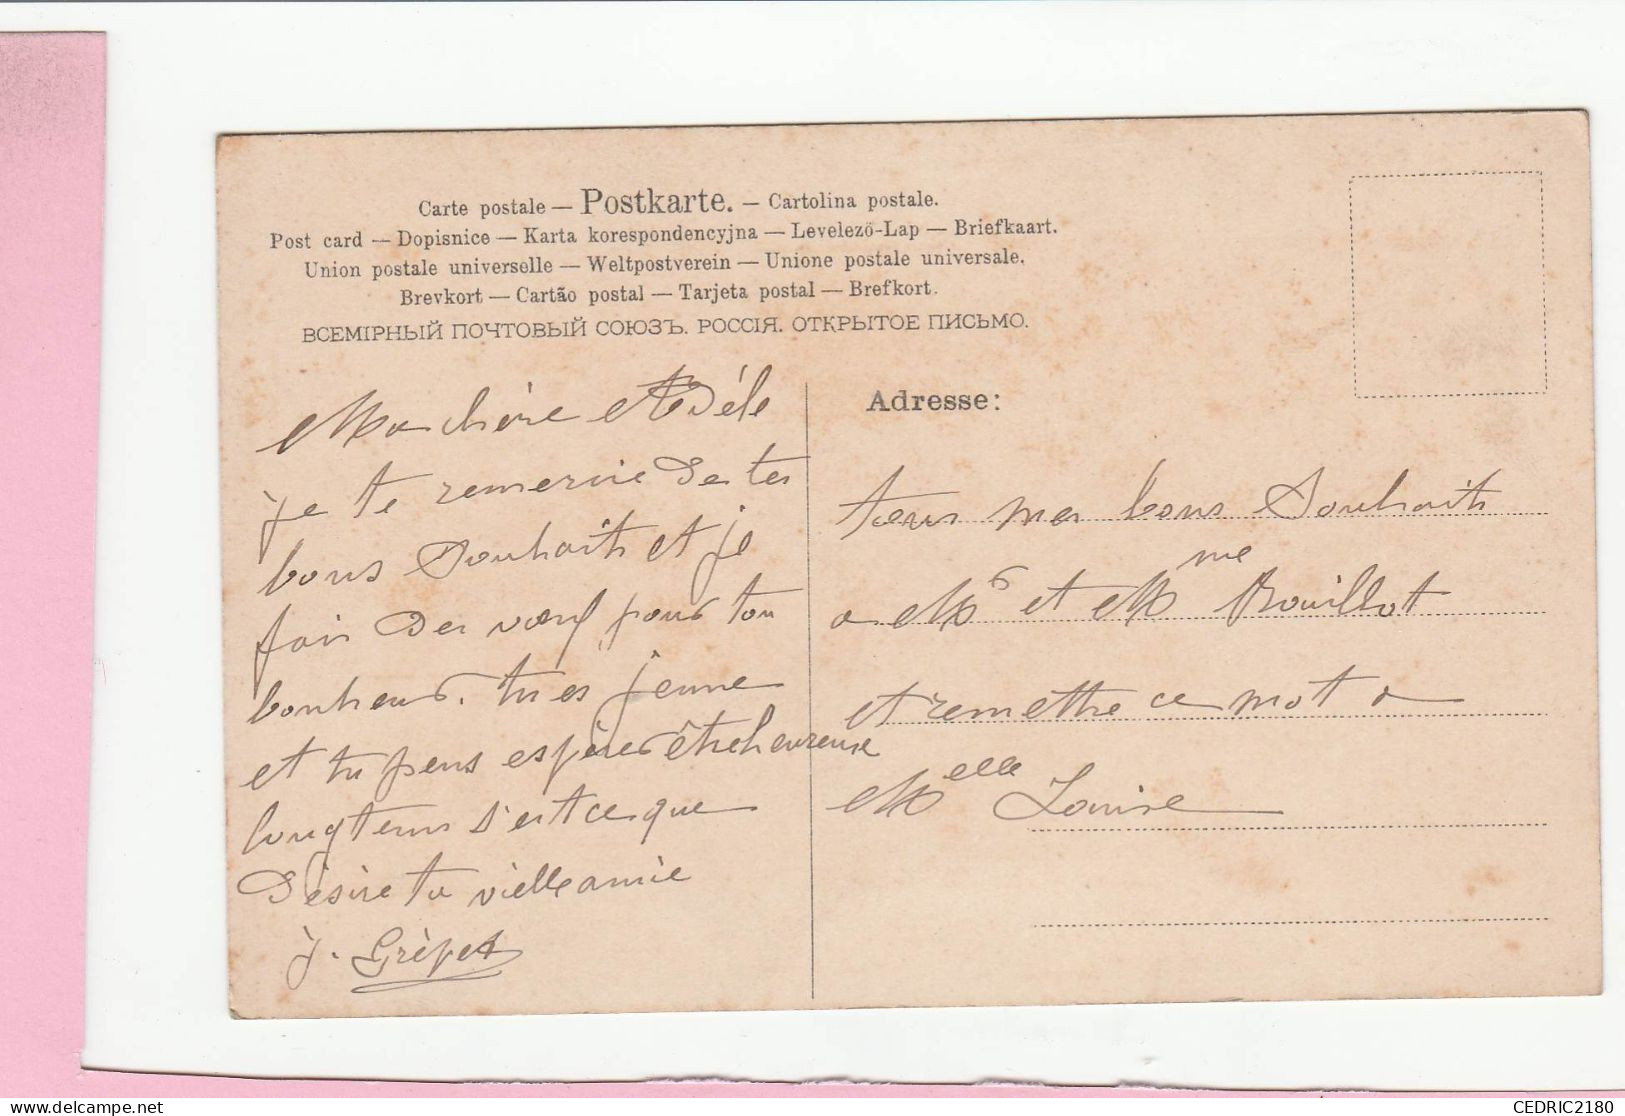 Carte postale — Postkarte. — Cartolina postale.
Post card — Dopisnice — Karta korespondencyjna — Levelező-Lap — Briefkaart.
Union postale universelle — Weltpostverein — Unione postale universale.
Brevkort — Cartão postal — Tarjeta postal — Brefkort.
ВСЕМІРНЫЙ ПОЧТОВЫЙ СОЮЗЪ. РОССІЯ. ОТКРЫТОЕ ПИСЬМО.
Ma chère Adèle
je te remercie de tes
bons souhaits et je
fais des vœux pour ton
bonheur. tu es jeune
et tu peus espèrer être heureuse
longtems s'est ce que
dèsire ta vielle amie
j. Grèpet
Adresse:
tous mes bons souhaits
a Mr et Mme Rouillot
et remettre ce mot a
Melle Louise
CEDRIC2180